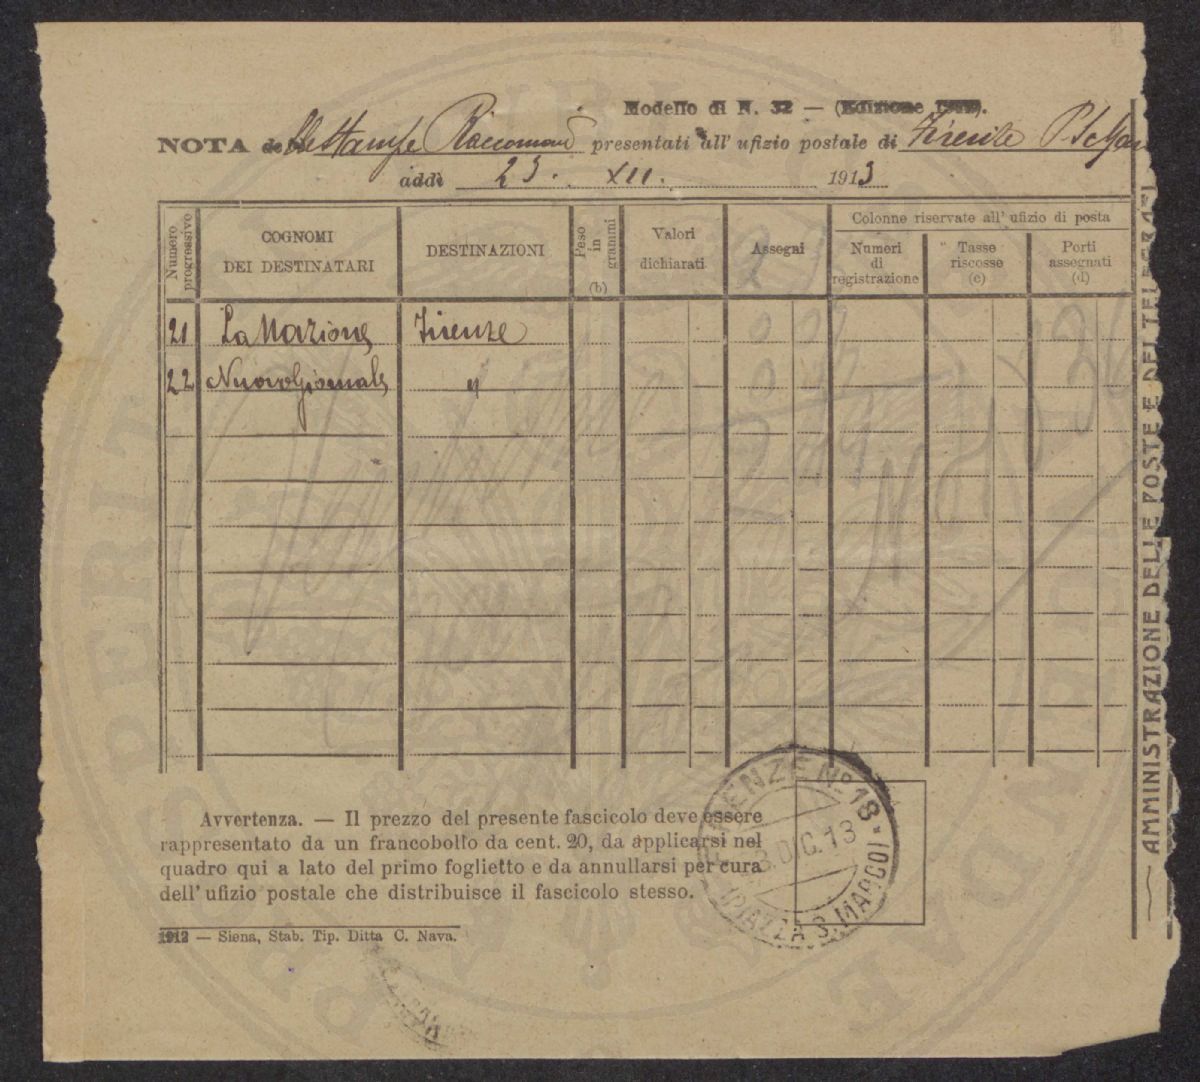 Modello di N. 32 — (Edizione
NOTA delle Stampe Raccomand presentati all' ufizio postale di Firenze
addì 23. XII. 1913
Numero progressivo
COGNOMI DEI DESTINATARI
DESTINAZIONI
Peso in grammi (b)
Valori dichiarati
Assegni
Colonne riservate all' ufizio di posta
Numeri di registrazione
Tasse riscosse (c)
Porti assegnati (d)
21 La Nazione Firenze
22 Nuovo Giornale "
Avvertenza. — Il prezzo del presente fascicolo deve essere
rappresentato da un francobollo da cent. 20, da applicarsi nel
quadro qui a lato del primo foglietto e da annullarsi per cura
dell' ufizio postale che distribuisce il fascicolo stesso.
1912 — Siena, Stab. Tip. Ditta C. Nava.
FIRENZE Nº 18
DIC. 13
(PIAZZA S. MARCO)
AMMINISTRAZIONE DELLE POSTE E DEI TELEGRAFI